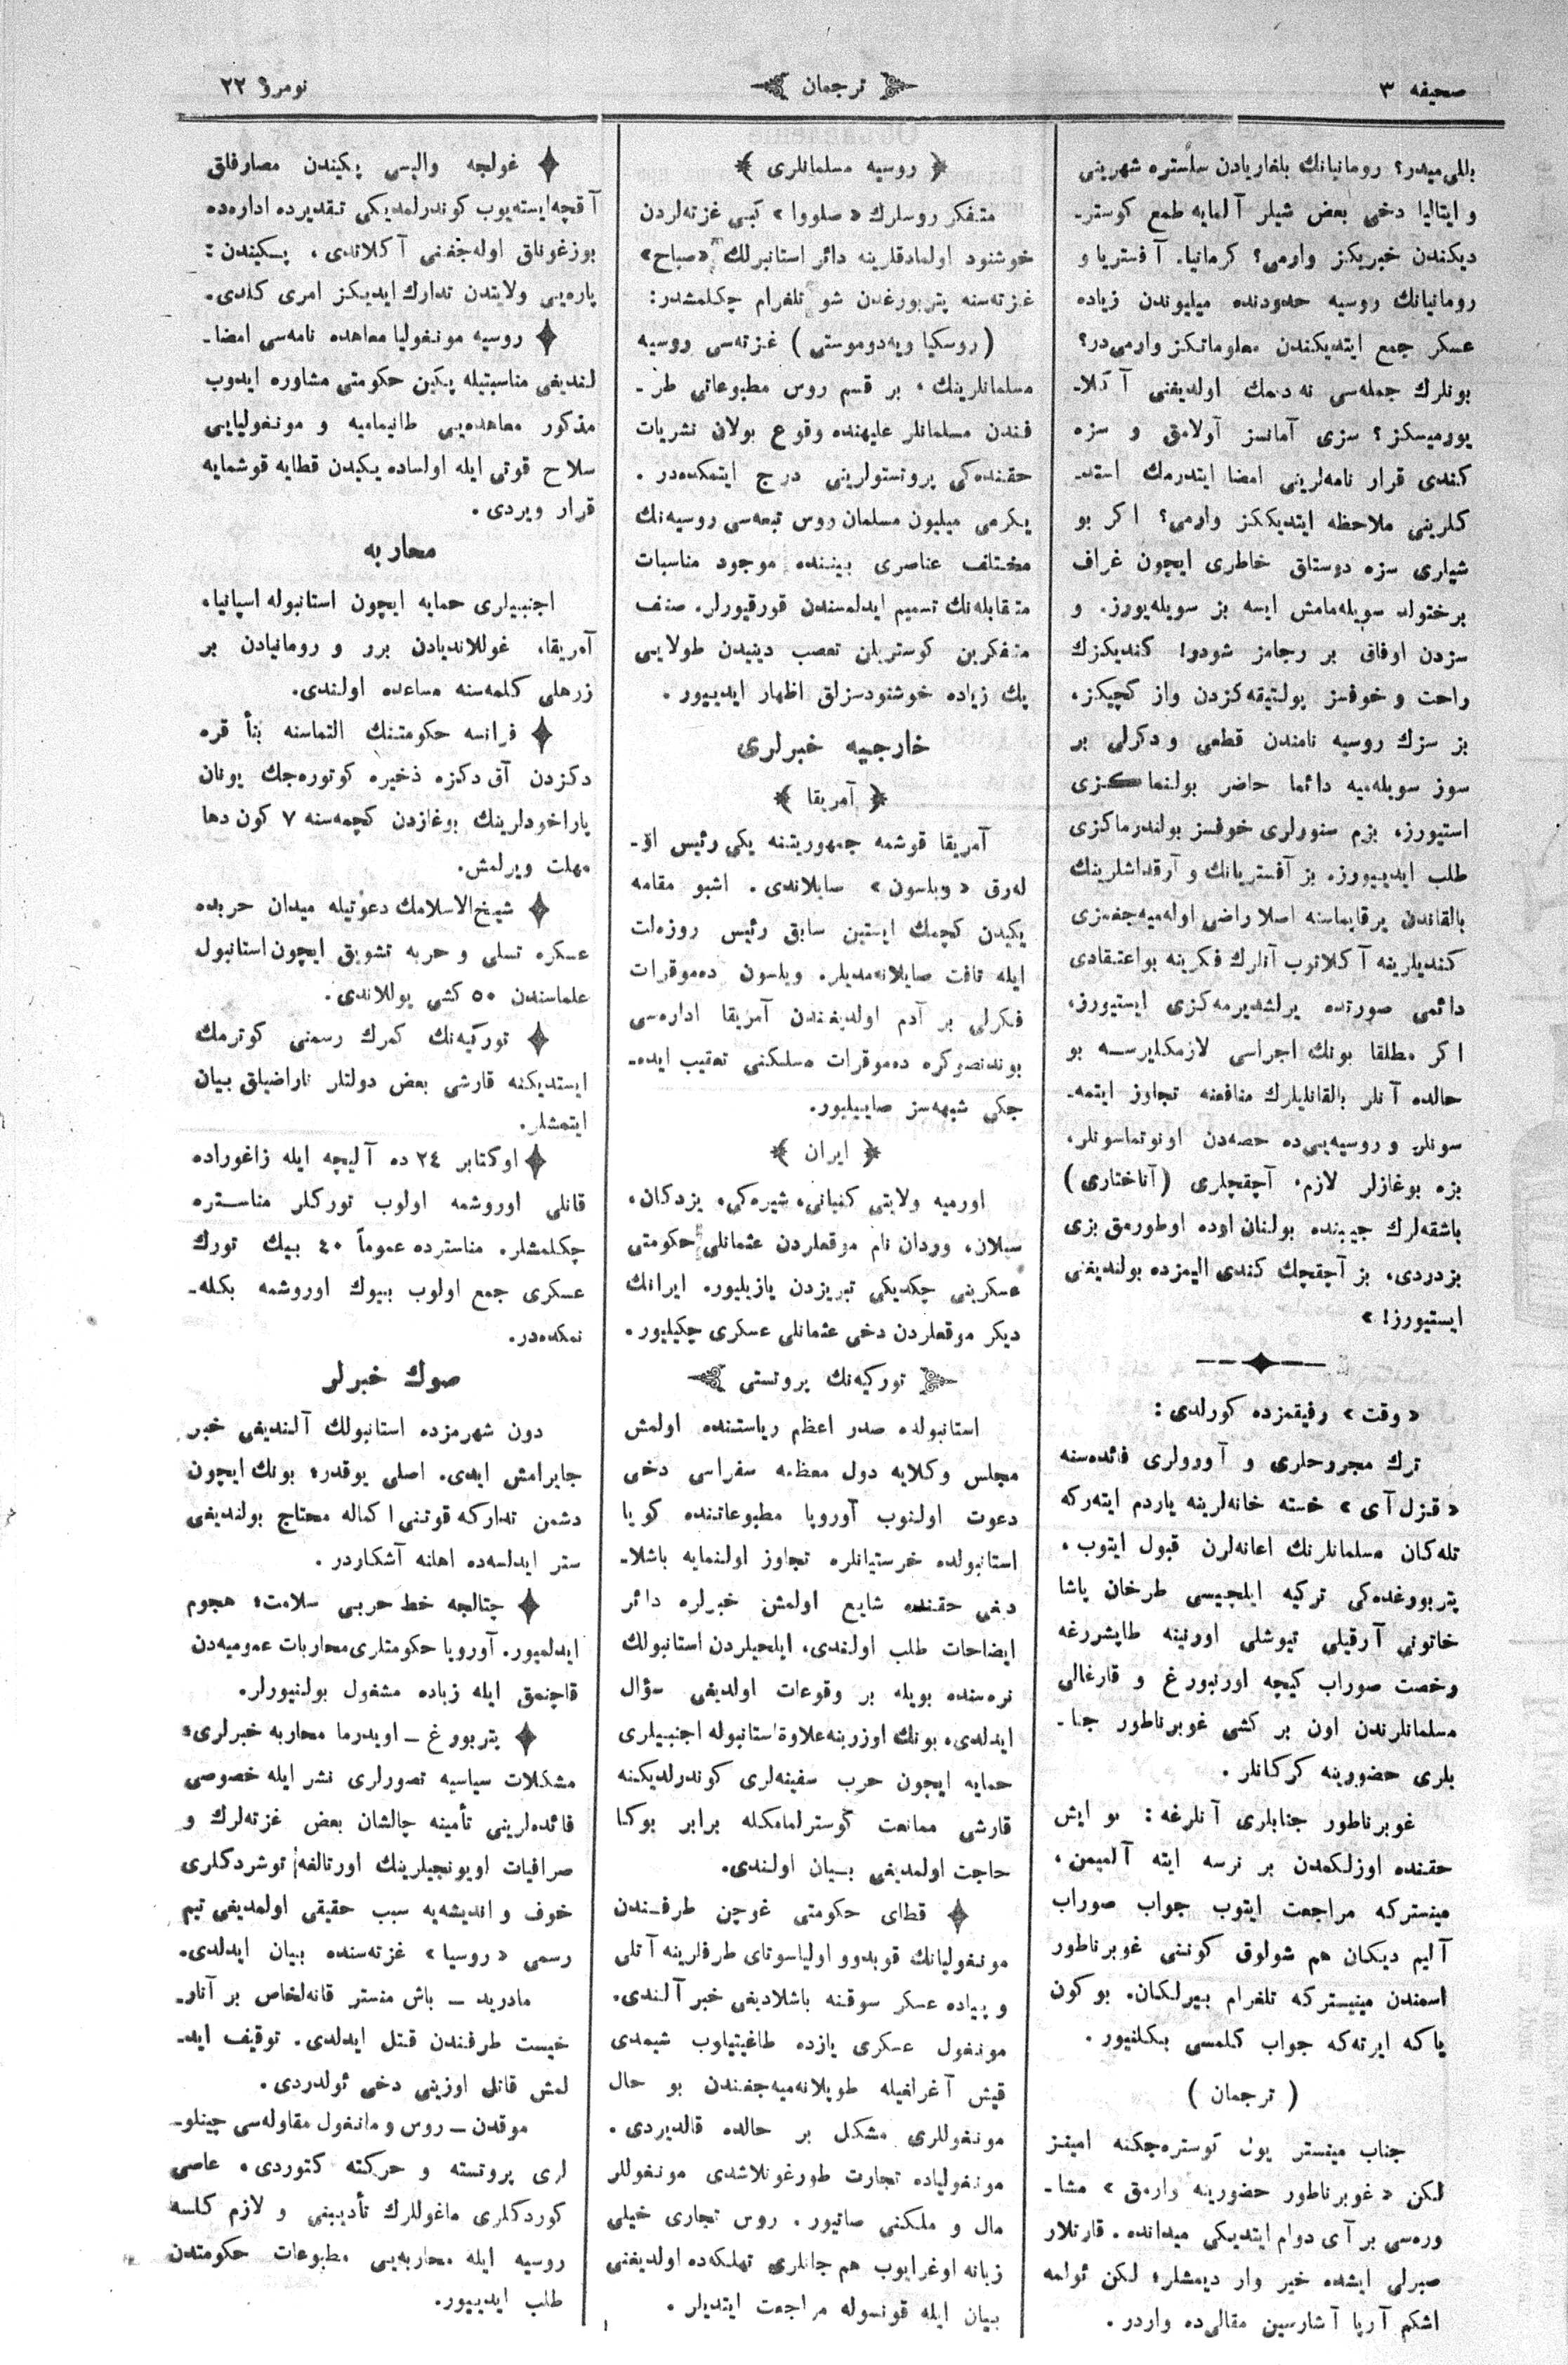 صحیفه ۳
ترجمان
نومرو ۲۲
بللی‌میدر؟ رومانیانك بلغاریادن سلستره شهرینی
و ایتالیا دخی بعض شیلر آلمایه طمع كوستر۔
دیكندن خبریكز وارمی؟ كرمانیا، آفستریا و
رومانیانك روسیه حدودنده میلیوندن زیاده
عسكر جمع ایتدیكندن معلوماتكز وارمی‌در؟
بونلرك جمله‌سی نه دیمك اولدیغنی آكلا۔
یورمیسكز؟ سزی آمانسز آولامق و سزه
كندی قرار نامه‌لرینی امضا ایتدرمك استد۔
كلرینی ملاحظه ایتدیككز وارمی؟ اكر بو
شیلری سزه دوستلق خاطری ایچون غراف
برختولد سویله‌مامش ایسه بز سویله‌یورز. و
سزدن اوفاق بر رجامز شودر! كندیكزك
راحت و خوفسز پولتیقه‌كزدن واز كچیكز،
بز سزك روسیه نامندن قطعی و دكرلی بر
سوز سویله‌میه دائما حاضر بولنماكزی
استیورز، بزم سنورلری خوفسز بولندرماكزی
طلب ایدییورز. بز آفستریانك و آرقداشلرینك
بالقاندن یرقاپماسنه اصلا راضی اوله‌میه‌جغمزی
كندیلرینه آكلاتوب آنلرك فكرینه بو اعتقادی
دائمی صورتده یرلشدیرمه‌كزی ایستیورز،
اكر مطلقا بونك اجراسی لازمكلیرســه بو
حالده آنلر بالقانلیلرك منافعنه تجاوز ایتمه۔
سونلر و روسیه‌یی‌ده حصه‌دن اونوتماسونلر،
بزه بوغازلر لازم، آچقچلری (آناختاری)
باشقه‌لرك جیبنده بولنان اوده اوطورمق بزی
بزدردی، بز آچقچك كندی الیمزده بولندیغنی
ایستیورز! »
« وقت » رفیقمزده كورلدی :
ترك مجروحلری و آورولری فائده‌سنه
« قزل آی » خسته خانه‌لرینه یاردم ایته‌ركه
تله‌كان مسلمانلرنك اعانه‌لرن قبول ایتوب،
پتربورغده‌كی تركیه ایلچیسی طرخان پاشا
خاتونی آرقیلی تیوشلی اورنینه طاپشررغه
رخصت صوراب كیچه اورنبورغ و قارغالی
مسلمانلرندن اون بر كشی غوبرناطور جنا۔
بلری حضورینه كركانلر .
غوبرناطور جنابلری آنلرغه : بو ایش
حقنده اوزلكمدن بر نرسه ایته آلمیمن،
مینستركه مراجعت ایتوب جواب صوراب
آلیم دیكان هم شولوق كوننی غوبرناطور
اسمندن مینیستركه تلغرام بیرلكان. بو كون
یاكه ایرته‌كه جواب كلمسی بكلنیور .
( ترجمان )
جناب مینستر یول كوستره‌جكنه امینز
لكن « غوبرناطور حضورینه وارمق » مشا۔
وره‌سی بر آی دوام ایتدیكی میدانده. قارتلار
صبرلی ایشده خیر وار دیمشلر؛ لكن ئولمه
اشكم آرپا آشارسین مقالی‌ده واردر .
روسیه مسلمانلری
متفكر روسلرك « صلووا » كبی غزته‌لردن
خوشنود اولمادقلرینه دائر استانبولك «صباح»
غزته‌سنه پتربورغدن شو تلغرام چكلمشدر:
(روسكیا ویه‌دوموستی) غزته‌سی روسیه
مسلمانلرینك، بر قسم روس مطبوعاتی طر۔
فندن مسلمانلر علیهنده وقوع بولان نشریات
حقنده‌كی پروتستولرینی درج ایتمكده‌در .
یكرمی میلیون مسلمان روس تبعه‌سی روسیه‌نك
مختلف عناصری بیننده موجود مناسبات
متقابله‌نك تسمیم ایدلمسندن قورقیورلر. صنف
متفكرین كوستریلن تعصب دینیدن طولایی
پك زیاده خوشنودسزلق اظهار ایدییور .
خارجیه خبرلری
آمریقا
آمریقا قوشمه جمهوریتنه یكی رئیس او۔
له‌رق « ویلسون » صایلاندی. اشبو مقامه
یكیدن كچمك ایستین سابق رئیس روزه‌لت
ایله تافت صایلانه‌مدیلر. ویلسون ده‌موقرات
فكرلی بر آدم اولدیغندن آمریقا اداره‌سی
بوندنصوكره ده‌موقرات مسلكنی تعقیب ایده۔
جكی شبهه‌سز صاییلیور.
ایران
اورمیه ولایتی كنیانی، شیره‌كی، یزدكان،
سیلان، وردان نام موقعلردن عثمانلی حكومتی
عسكرینی چكدیكی تبریزدن یازیلیور. ایرانك
دیكر موقعلردن دخی عثمانلی عسكری چكیلیور.
توركیه‌نك پروتستی
استانبولده صدر اعظم ریاستنده اولمش
مجلس وكلایه دول معظمه سفراسی دخی
دعوت اولنوب آوروپا مطبوعاتنده كویا
استانبولده خرستیانلره تجاوز اولنمایه باشلا۔
دیغی حقنده شایع اولمش خبرلره دائر
ایضاحات طلب اولندی، ایلچیلردن استانبولك
نره‌سنده بویله بر وقوعات اولدیغی سؤال
ایدلدی، بونك اوزرینه علاوة استانبوله اجنبیلری
حمایه ایچون حرب سفینه‌لری كوندرلدیكنه
قارشی ممانعت كوسترلمامكله برابر بوكا
حاجت اولمدیغی بیان اولندی.
قطای حكومتی غوچن طرفندن
مونغولیانك قوبدوو اولیاسوتای طرفلرینه آتلی
و پیاده عسكر سوقنه باشلادیغی خبر آلندی.
مونغول عسكری یازده طاغیتیلوب شیمدی
قیش آغرلغیله طوپلانه‌میه‌جغندن بو حال
مونغوللری مشكل بر حالده قالدیردی .
مونغولیاده تجارت طورغونلاشدی مونغوللر
مال و ملكنی صاتیور . روس تجاری خیلی
زیانه اوغرایوب هم جانلری تهلكه‌ده اولدیغنی
بیان ایله قونسوله مراجعت ایتدیلر .
غولجه والیسی پكیندن مصارفلق
آقچه ایسته‌یوب كوندرلمدیكی تقدیرده اداره‌ده
بوزغونلق اوله‌جغنی آكلاندی، پكیندن :
پاره‌یی ولایتدن تدارك ایدیكز امری كلدی.
روسیه مونغولیا معاهده نامه‌سی امضا۔
لندیغی مناسبتیله پكین حكومتی مشاوره ایدوب
مذكور معاهده‌یی طانیمامیه و مونغولیایی
سلاح قوتی ایله اولساده یكیدن قطایه قوشمایه
قرار ویردی .
محاربه
اجنبیلری حمایه ایچون استانبوله اسپانیا،
آمریقا، غوللاندیادن برر و رومانیادن بر
زرهلی كلمه‌سنه مساعده اولندی.
فرانسه حكومتنك التماسنه بنأ قره
دكزدن آق دكزه ذخیره كوتوره‌جك یونان
پاراخودلرینك بوغازدن كچمه‌سنه ۷ كون دها
مهلت ویرلمش.
شیخ‌الاسلامك دعوتیله میدان حربده
عسكره تسلی و حربه تشویق ایچون استانبول
علماسندن ۵۰ كشی یوللاندی.
توركیه‌نك كمرك رسمنی كوترمك
ایستدیكنه قارشی بعض دولتلر ناراضیلق بیان
ایتمشلر.
اوكتابر ۲٤ ده آلیچه ایله زاغوراده
قانلی اوروشمه اولوب توركلر مناستره
چكلمشلر. مناسترده عموماً ٤۰ بیك تورك
عسكری جمع اولوب بیوك اوروشمه بكله۔
نمكده‌در.
صوك خبرلر
دون شهرمزده استانبولك آلندیغی خبر
جایرامش ایدی. اصلی یوقدر؛ بونك ایچون
دشمن تداركه قوتنی اكماله محتاج بولندیغی
ستر ایدلسه‌ده اهلنه آشكاردر .
چتالجه خط حربی سلامت؛ هجوم
ایدلمیور. آوروپا حكومتلری محاربات عمومیه‌دن
قاچنمق ایله زیاده مشغول بولنیورلر.
پتربورغ ــ اویدرما محاربه خبرلری؛
مشكلات سیاسیه تصورلری نشر ایله خصوصی
فائده‌لرینی تأمینه چالشان بعض غزته‌لرك و
صرافیات اویونجیلرینك اورتالغه توشردكلری
خوف و اندیشه‌یه سبب حقیقی اولمدیغی نیم
رسمی « روسیا » غزته‌سنده بیان ایدلدی.
مادرید ــ باش منستر قانه‌لخاص بر آنار۔
خیست طرفندن قتل ایدلدی. توقیف اید۔
لمش قاتل اوزینی دخی ئولدردی.
موقدن ــ روس و مانغول مقاوله‌سی چینلو۔
لری پروتسته و حركته كتوردی. عاصی
كوردكلری ماغوللرك تأدیبینی و لازم كلسه
روسیه ایله محاربه‌یی مطبوعات حكومتدن
طلب ایدییور.